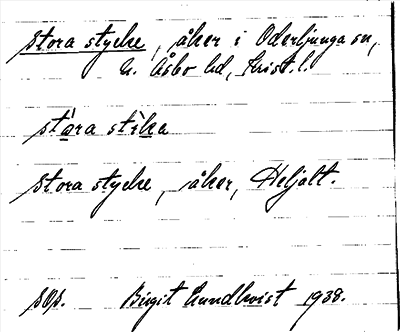 Stora stycke, åker i Oderljunga sn,
N. Åsbo hd, Krist. l.
stára stìka
Stora stycke, åker, Heljalt.
Birgit Lundkvist 1938.